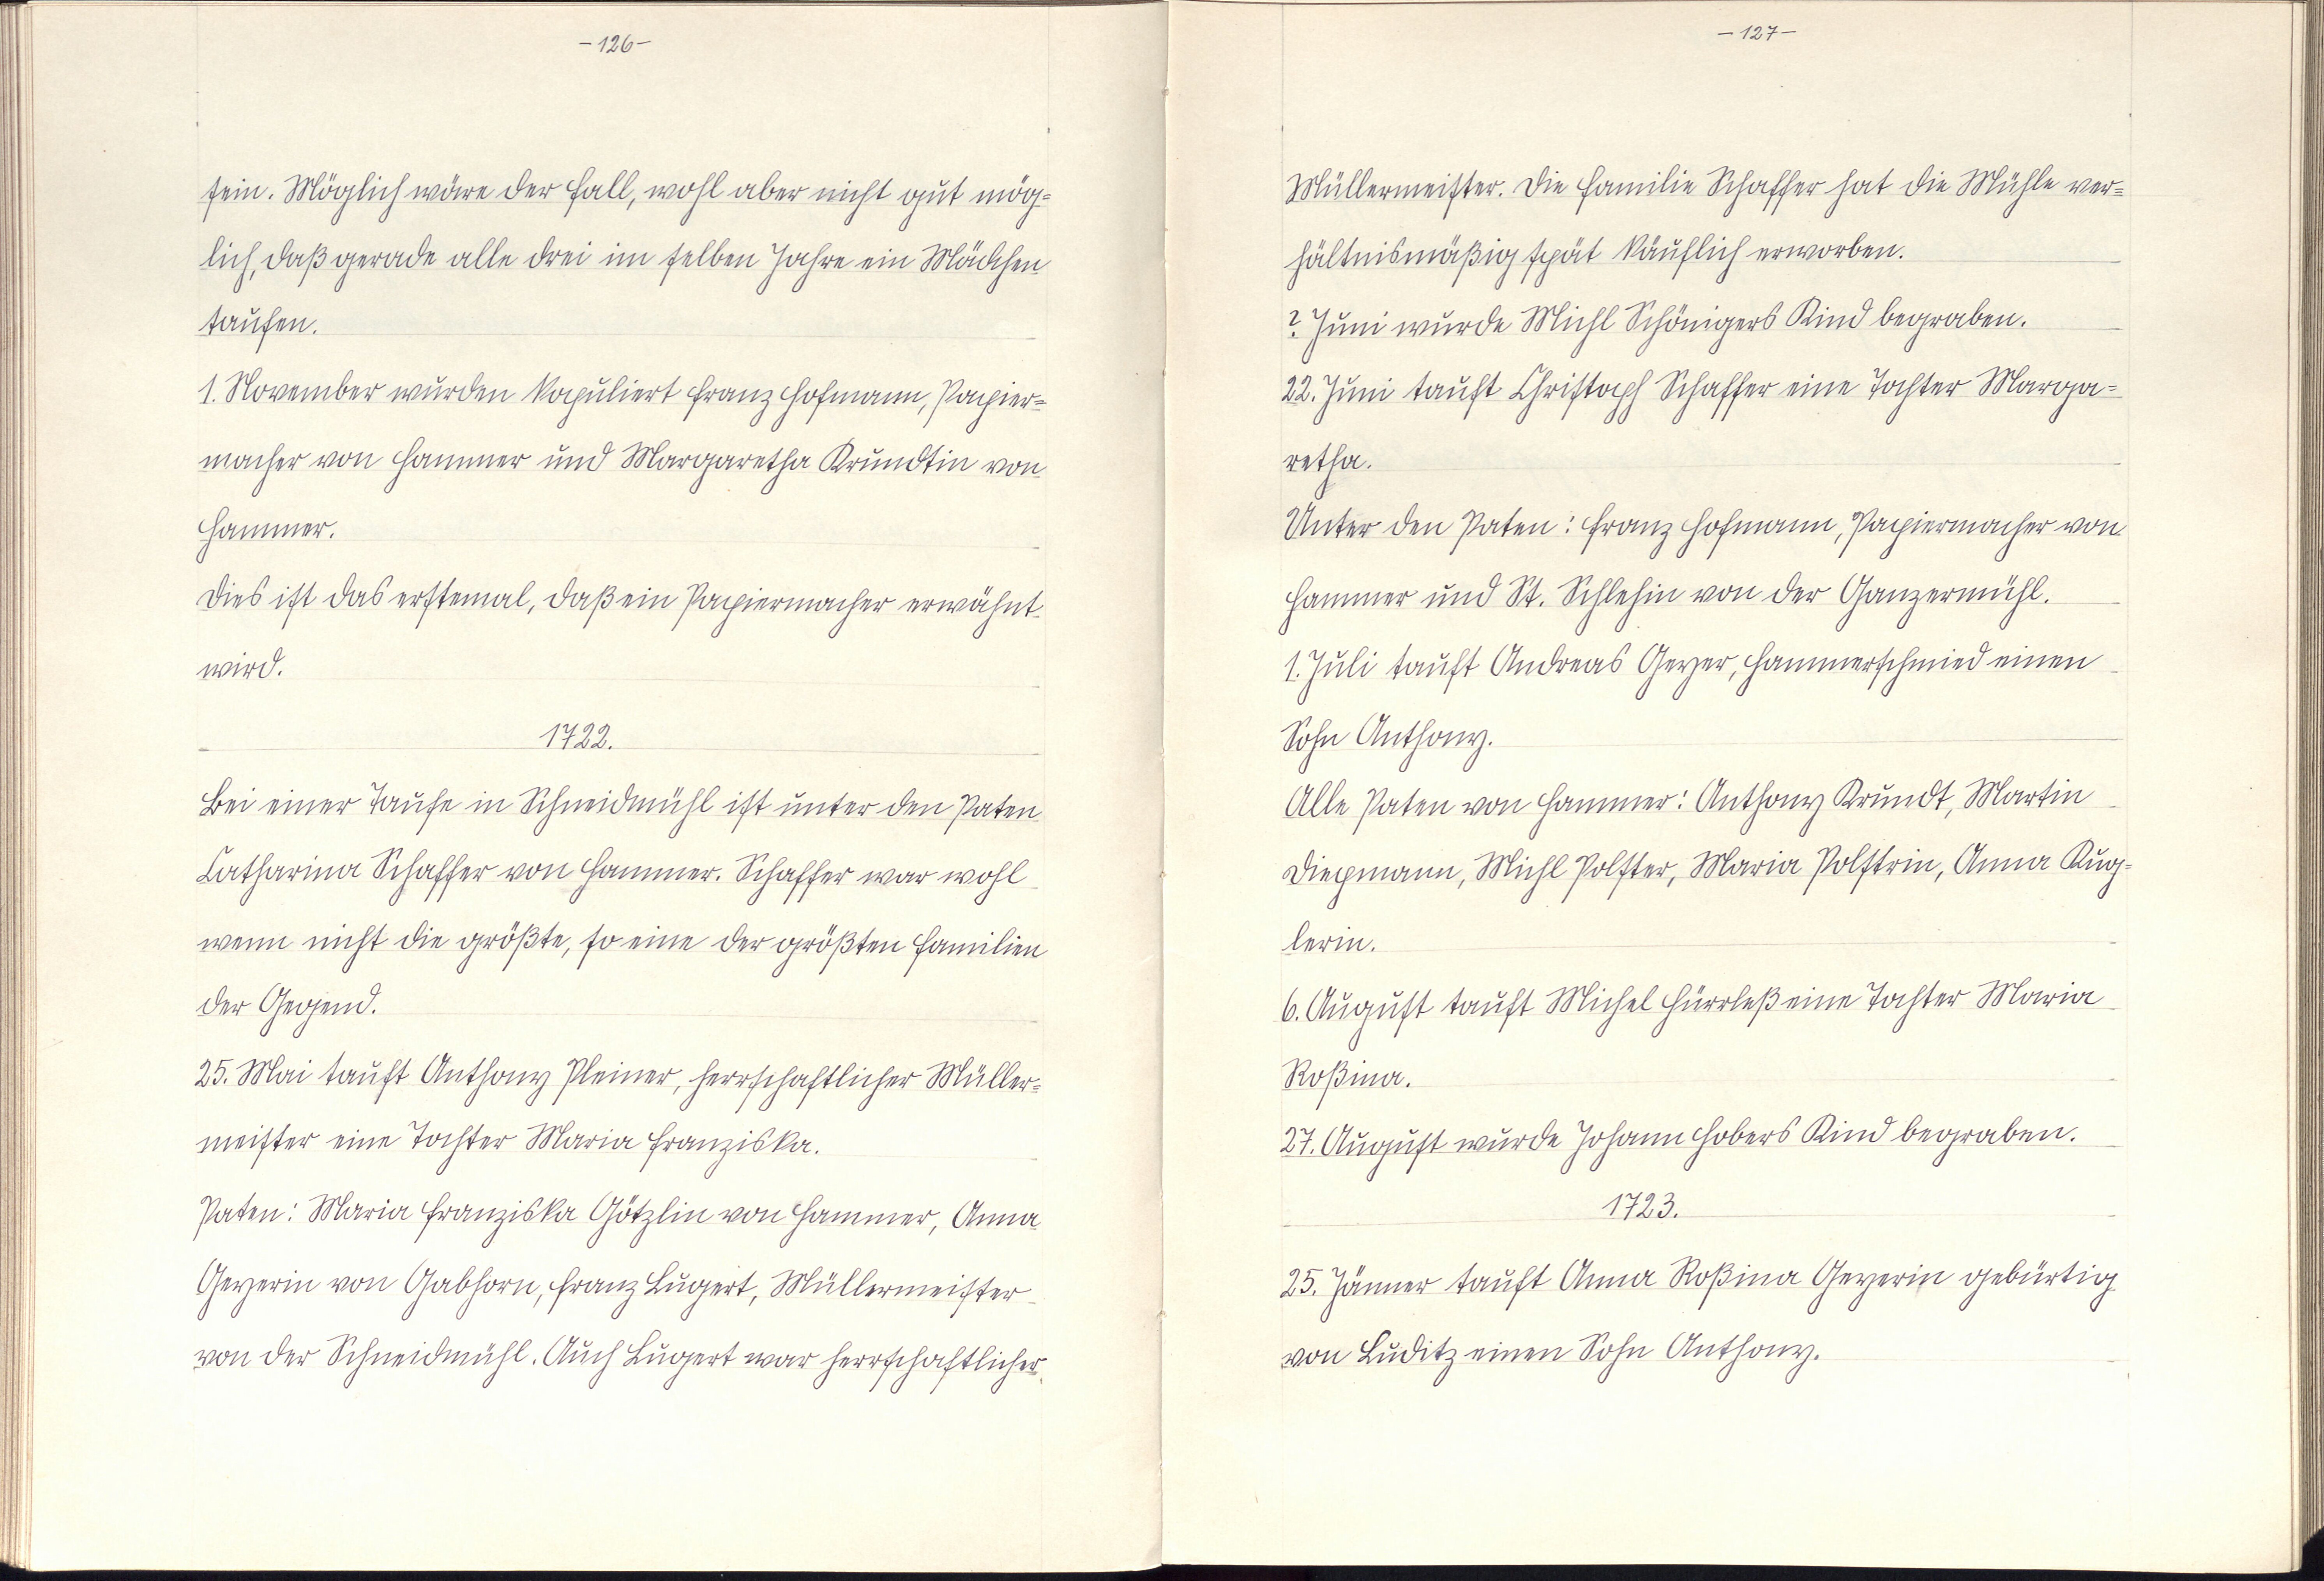 -126-
sein. Möglich wäre der Fall, wohl aber nicht gut mög=
lich, daß gerade alle drei im selben Jahre ein Mädchen
taufen.
1. November wurden kopuliert Franz Hofmann, Papier=
macher von Hammer und Margaretha Krundtin von
Hammer.
Dies ist das erstemal, daß ein Papiermacher erwähnt
wird.
1722.
Bei einer Taufe in Schneidmühl ist unter den Paten
Catharina Schaffer von Hammer. Schaffer war wohl
wenn nicht die größte, so eine der größten Familien
der Gegend.
25. Mai tauft Anthony Pleiner, herrschaftlicher Müller=
meister eine Tochter Maria Franziska.
Paten: Maria Franziska Götzlin von Hammer, Anna
Geyerin von Gabhorn, Franz Lugert, Müllermeister
von der Schneidmühl. Auch Lugert war herrschaftlicher
-127-
Müllermeister. Die Familie Schaffer hat die Mühle ver=
hältnismäßig spät käuflich erworben.
? Juni wurde Michl Schönigers Kind begraben.
22. Juni tauft Christoph Schaffer eine Tochter Marga=
retha.
Unter den Paten: Franz Hofmann, Papiermacher von
Hammer und St. Schlehin von der Ganzermühl.
1. Juli tauft Andreas Geyer, Hammerschmied einen
Sohn Anthony.
Alle Paten von Hammer: Anthony Krundt, Martin
Diepmann, Michl Polster, Maria Polstrin, Anna Kug=
lerin.
6. August tauft Michel Hürrleß eine Tochter Maria
Roßina.
27. August wurde Johann Hobers Kind begraben.
1723.
25. Jänner tauft Anna Roßina Geyerin gebürtig
von Luditz einen Sohn Anthony.